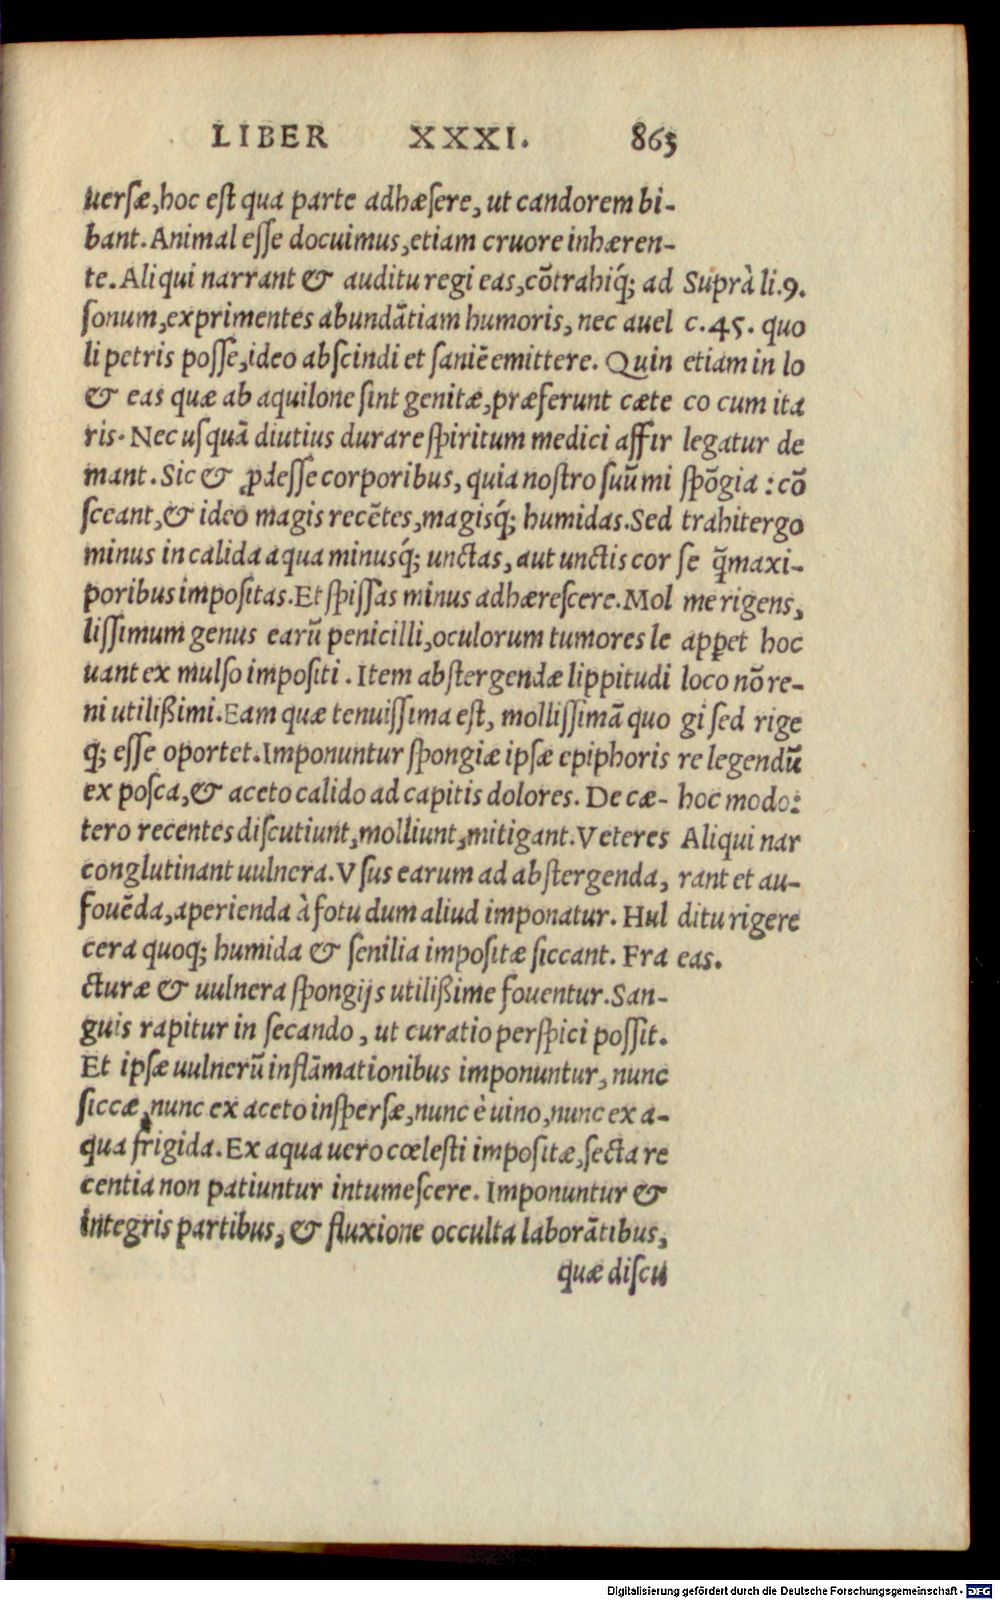 LIBER XXXI. 863
uersæ, hoc est qua parte adhæsere, ut candorem bi-
bant. Animal esse docuimus, etiam cruore inhæren-
te. Aliqui narrant & auditu regi eas, cōtrahiq́; ad
sonum, exprimentes abundātiam humoris, nec auel
li petris posse, ideo abscindi et saniē emittere. Quin
& eas quæ ab aquilone sint genitæ, præferunt cæte
ris. Nec usquā diutius durare spiritum medici affir
mant. Sic & ꝓdesse corporibus, quia nostro suū mi
sceant, & ideo magis recētes, magisq́; humidas. Sed
minus in calida aqua minusq́; unctas, aut unctis cor
poribus impositas. Et spissas minus adhærescere. Mol
lissimum genus earū penicilli, oculorum tumores le
uant ex mulso impositi. Item abstergendæ lippitudi
ni utilißimi. Eam quæ tenuissima est, mollissimā quo
q; esse oportet. Imponuntur spongiæ ipsæ epiphoris
ex posca, & aceto calido ad capitis dolores. De cæ-
tero recentes discutiunt, molliunt, mitigant. Veteres
conglutinant uulnera. Vsus earum ad abstergenda,
fouēda, aperienda à fotu dum aliud imponatur. Hul
cera quoq; humida & senilia impositæ siccant. Fra
cturæ & uulnera spongijs utilißime fouentur. San-
guis rapitur in secando, ut curatio perspici possit.
Et ipsæ uulnerū inflāmationibus imponuntur, nunc
siccæ, nunc ex aceto inspersæ, nunc è uino, nunc ex a-
qua frigida. Ex aqua uero cœlesti impositæ, secta re
centia non patiuntur intumescere. Imponuntur &
integris partibus, & fluxione occulta laborātibus,
quæ discu
Suprà li. 9.
c. 45. quo
etiam in lo
co cum ita
legatur de
spōgia: cō
trahit ergo
se q̄ maxi-
me rigens,
apꝑet hoc
loco nō re-
gi sed rige
re legendū
hoc modo:
Aliqui nar
rant et au-
ditu rigere
eas.
Digitalisierung gefördert durch die Deutsche Forschungsgemeinschaft - DFG